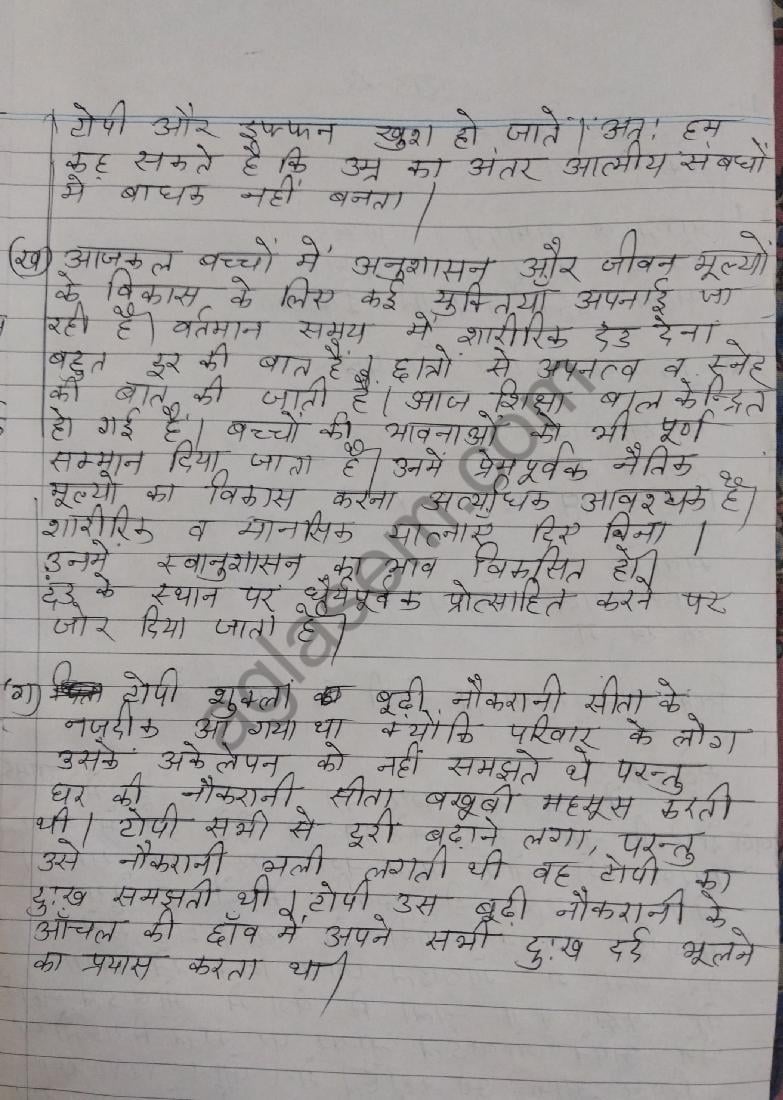 टोपी और इफ्फन खुश हो जाते। अतः हम
कह सकते है कि उम्र का अंतर आत्मीय संबधों
मे बाधक नहीं बनता।
(ख) आजकल बच्चों में अनुशासन और जीवन मूल्यों
के विकास के लिए कई युक्तिया अपनाई जा
रही है। वर्तमान समय में शारीरिक दंड देना
बहुत दूर की बात है। छात्रों से अपनत्व व स्नेह
की बात की जाती है। आज शिक्षा बाल केन्द्रित
हो गई है। बच्चों की भावनाओं को भी पूर्ण
सम्मान दिया जाता है। उनमें प्रेमपूर्वक नैतिक
मूल्यों का विकास करना अत्यधिक आवश्यक है।
शारीरिक व मानसिक यातनाएं दिए बिना।
उनमें स्वानुशासन का भाव विकसित हो।
दंड के स्थान पर धैर्यपूर्वक प्रोत्साहित करने पर
जोर दिया जाता है।
(ग) टोपी शुक्ला बूढ़ी नौकरानी सीता के
नजदीक आ गया था क्योकि परिवार के लोग
उसके अकेलेपन को नहीं समझते थे परन्तु
घर की नौकरानी सीता बखूबी महसूस करती
थी। टोपी सभी से दूरी बढ़ाने लगा, परन्तु
उसे नौकरानी भली लगती थी वह टोपी का
दुःख समझती थी। टोपी उस बूढ़ी नौकरानी के
आँचल की छाँव में अपने सभी दुःख दर्द भूलने
का प्रयास करता था।
aglasem.com